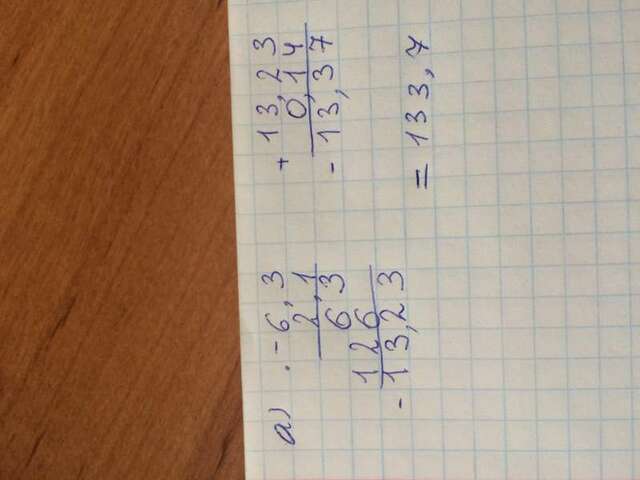 а) · -6,3
2,1
63
126
-13,23
+ 13,23
0,14
- 13,37
= 133,7